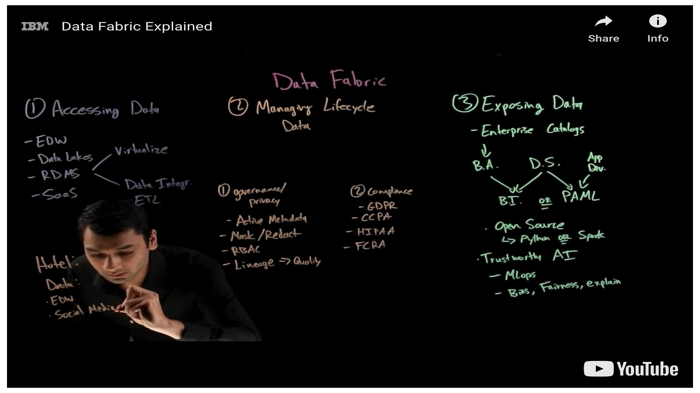 IBM
Data Fabric Explained
Share
Info
Data Fabric
① Accessing Data
- EDW
- Data Lakes
- RDMS
- SaaS
Virtualize
Data Integr.
ETL
Hotel:
Data:
· EDW
· Social Media
② Managing Lifecycle
Data
① governance/
privacy
- Active Metadata
- Mask/Redact
- RBAC
- Lineage => Quality
② Compliance
- GDPR
- CCPA
- HIPAA
- FCRA
③ Exposing Data
- Enterprise Catalogs
B.A.
D.S.
App
Dev.
BI. OR PAML
· Open Source
↳ Python OR Spark
· Trustworthy AI
- MLops
- Bias, Fairness, explain
YouTube